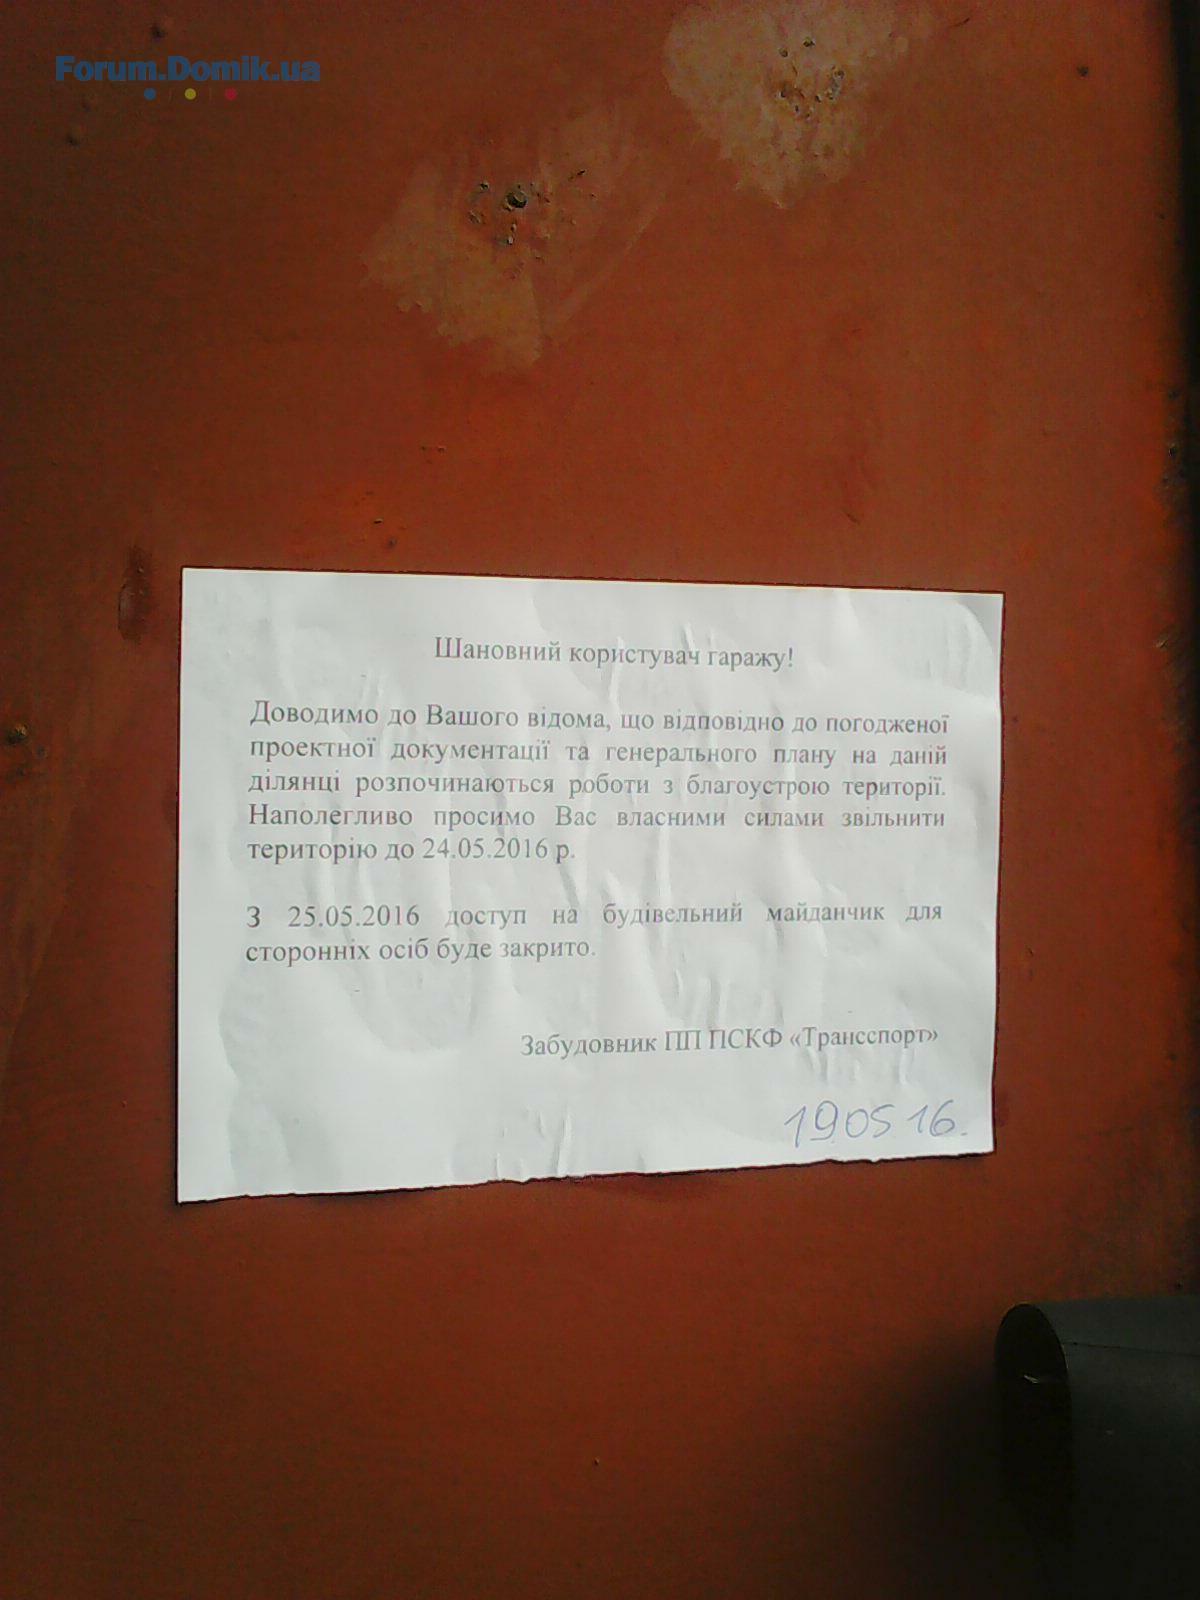 Forum.Domik.ua
Шановний користувач гаражу!
Доводимо до Вашого відома, що відповідно до погодженої
проектної документації та генерального плану на даній
ділянці розпочинаються роботи з благоустрою території.
Наполегливо просимо Вас власними силами звільнити
територію до 24.05.2016 р.
З 25.05.2016 доступ на будівельний майданчик для
сторонніх осіб буде закрито.
Забудовник ПП ПСКФ «Трансспорт»
190516.